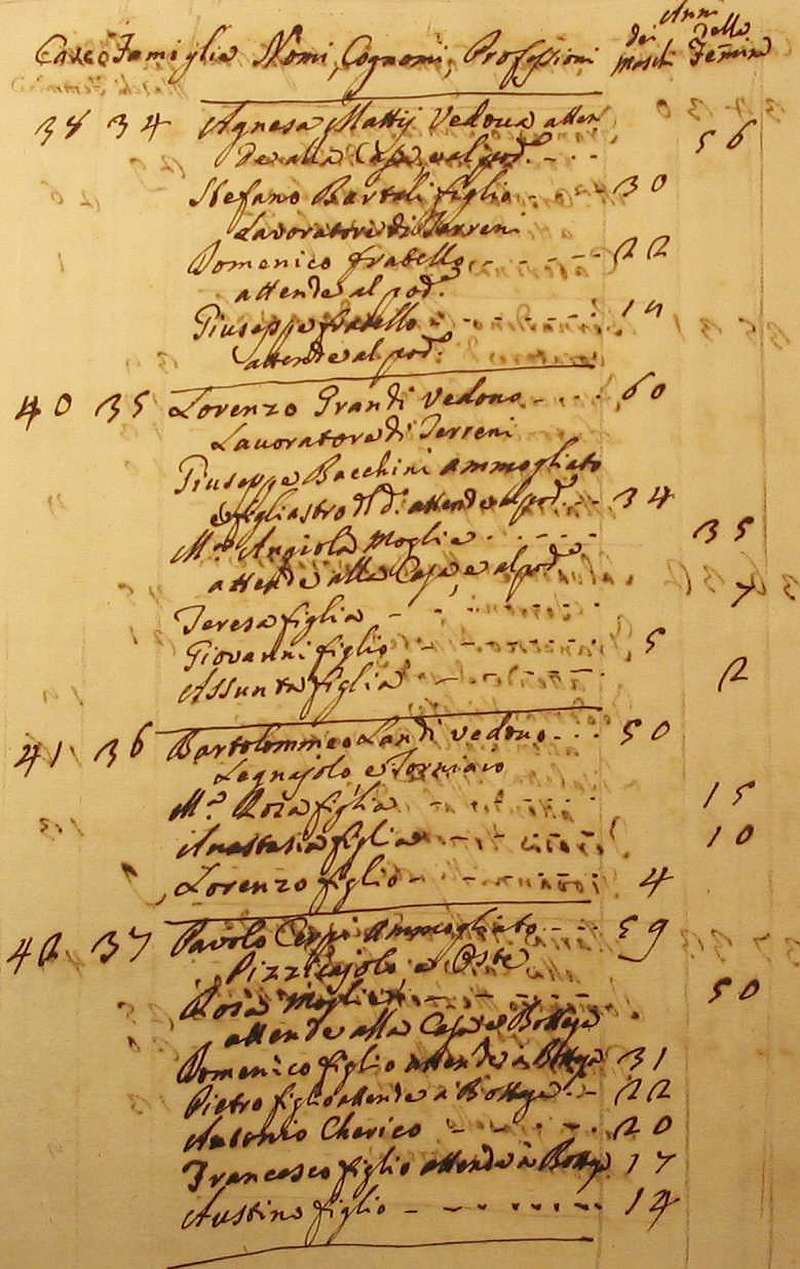 Anni
Case Famiglie Nomi, Cognomi, Professioni dei Maschi delle Femine
38 34 Agnesa Mattij Vedova atten
de alla Casa, e al pod.e - - - 56
Stefano Bartoli figlio - - - 30
Lavoratore di Terreni
Domenico fratello - - - - - - 22
attende al pod.e
Giuseppe fratello - - - - - - - 19
attende al pod.e
40 35 Lorenzo Grandi Vedovo - - - 60
Lavoratore di Terreni
Giuseppe Bacchini Ammogliato
e figliastro d.l d.o attende al pod.e - - 34
M.a Angiola Moglie - - - - - 35
attende alla Casa, e al pod.e
Teresa figlia - - - - - 7
Giovanni figlio - - - - - - 5
Assunta figlia - - - - - - 2
41 36 Bartolommeo Landi vedovo - - - 50
Legnajolo, e Torniaio
M.a Rosa figlia - - - - - - 15
Anastasia figlia - - - - - - 10
Lorenzo figlio - - - - - - 4
42 37 Pavolo Ceppi Ammogliato - - - 59
Pizzicajolo e Oste
Rosa Moglie - - - - - - 50
attende alla Casa e Bottega
Domenico figlio attende à Bottega 31
Pietro figlio attende à Bottega - - 22
Antonio Cherico - - - - - 20
Francesco figlio attende à Botteg.a 17
Austino figlio - - - - - - - - 14